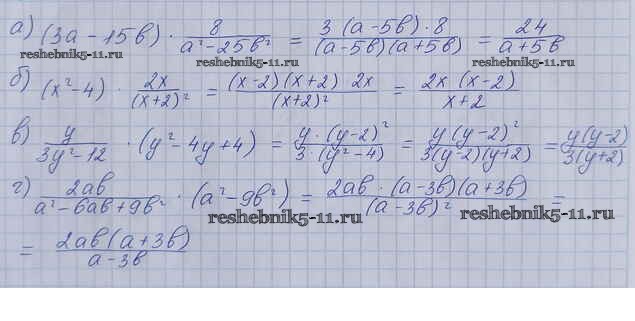 а) (3a - 15b) · 8/(a² - 25b²) = 3(a - 5b)·8/((a - 5b)(a + 5b)) = 24/(a + 5b)
reshebnik5-11.ru reshebnik5-11.ru
б) (x² - 4) · 2x/(x + 2)² = (x - 2)(x + 2) 2x/(x + 2)² = 2x (x - 2)/(x + 2)
в) y/(3y² - 12) · (y² - 4y + 4) = y · (y - 2)²/(3·(y² - 4)) = y(y - 2)²/(3(y - 2)(y + 2)) = y(y - 2)/(3(y + 2))
г) 2ab/(a² - 6ab + 9b²) · (a² - 9b²) = 2ab · (a - 3b)(a + 3b)/(a - 3b)² =
reshebnik5-11.ru reshebnik5-11.ru
= 2ab(a + 3b)/(a - 3b)